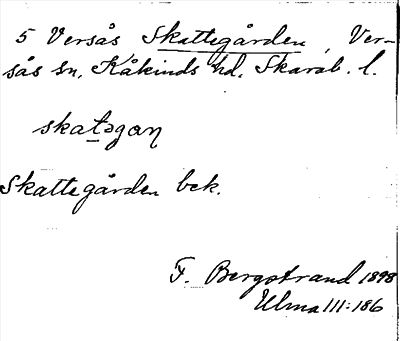 5 Versås Skattegården, Ver-
sås sn, Kåkinds hd. Skarab. l.
skatəgaɳ
Skattegården bek.
F. Bergstrand 1898
Ulma III:186